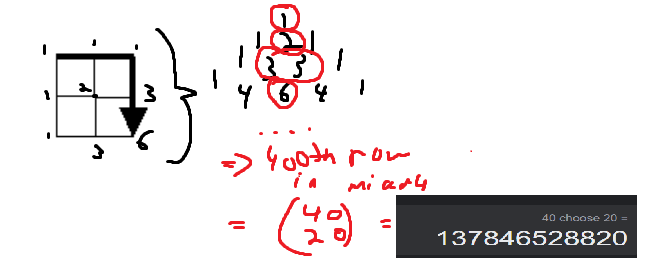 1 1 1
1 2 3
1 3 6
1
1 2 1
1 3 3 1
1 4 6 4 1
....
=> 400th row
in
= (40
20) =
40 choose 20 =
137846528820